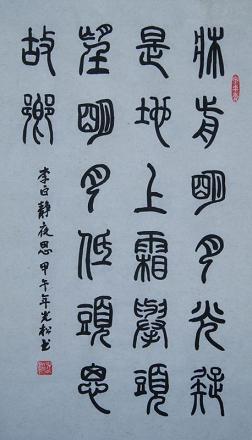 床前明月光疑
是地上霜舉頭
望明月低頭思
故鄉
李白靜夜思甲午年光松书